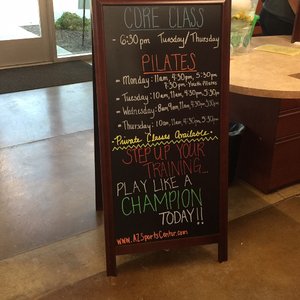 CORE CLASS
- 6:30 pm Tuesday/Thursday
PILATES
- Monday: 11am, 4:30pm, 5:30pm
7:30pm - Youth Pilates
- Tuesday: 10am, 11am, 4:30pm, 5:30pm
- Wednesday: 8am, 9am, 11am, 4:30pm, 5:30pm
- Thursday: 10am, 11am, 4:30pm, 5:30pm
Private Classes Available.
STEP UP YOUR
TRAINING...
PLAY LIKE A
CHAMPION
TODAY!!
www.AZSportsCenter.com